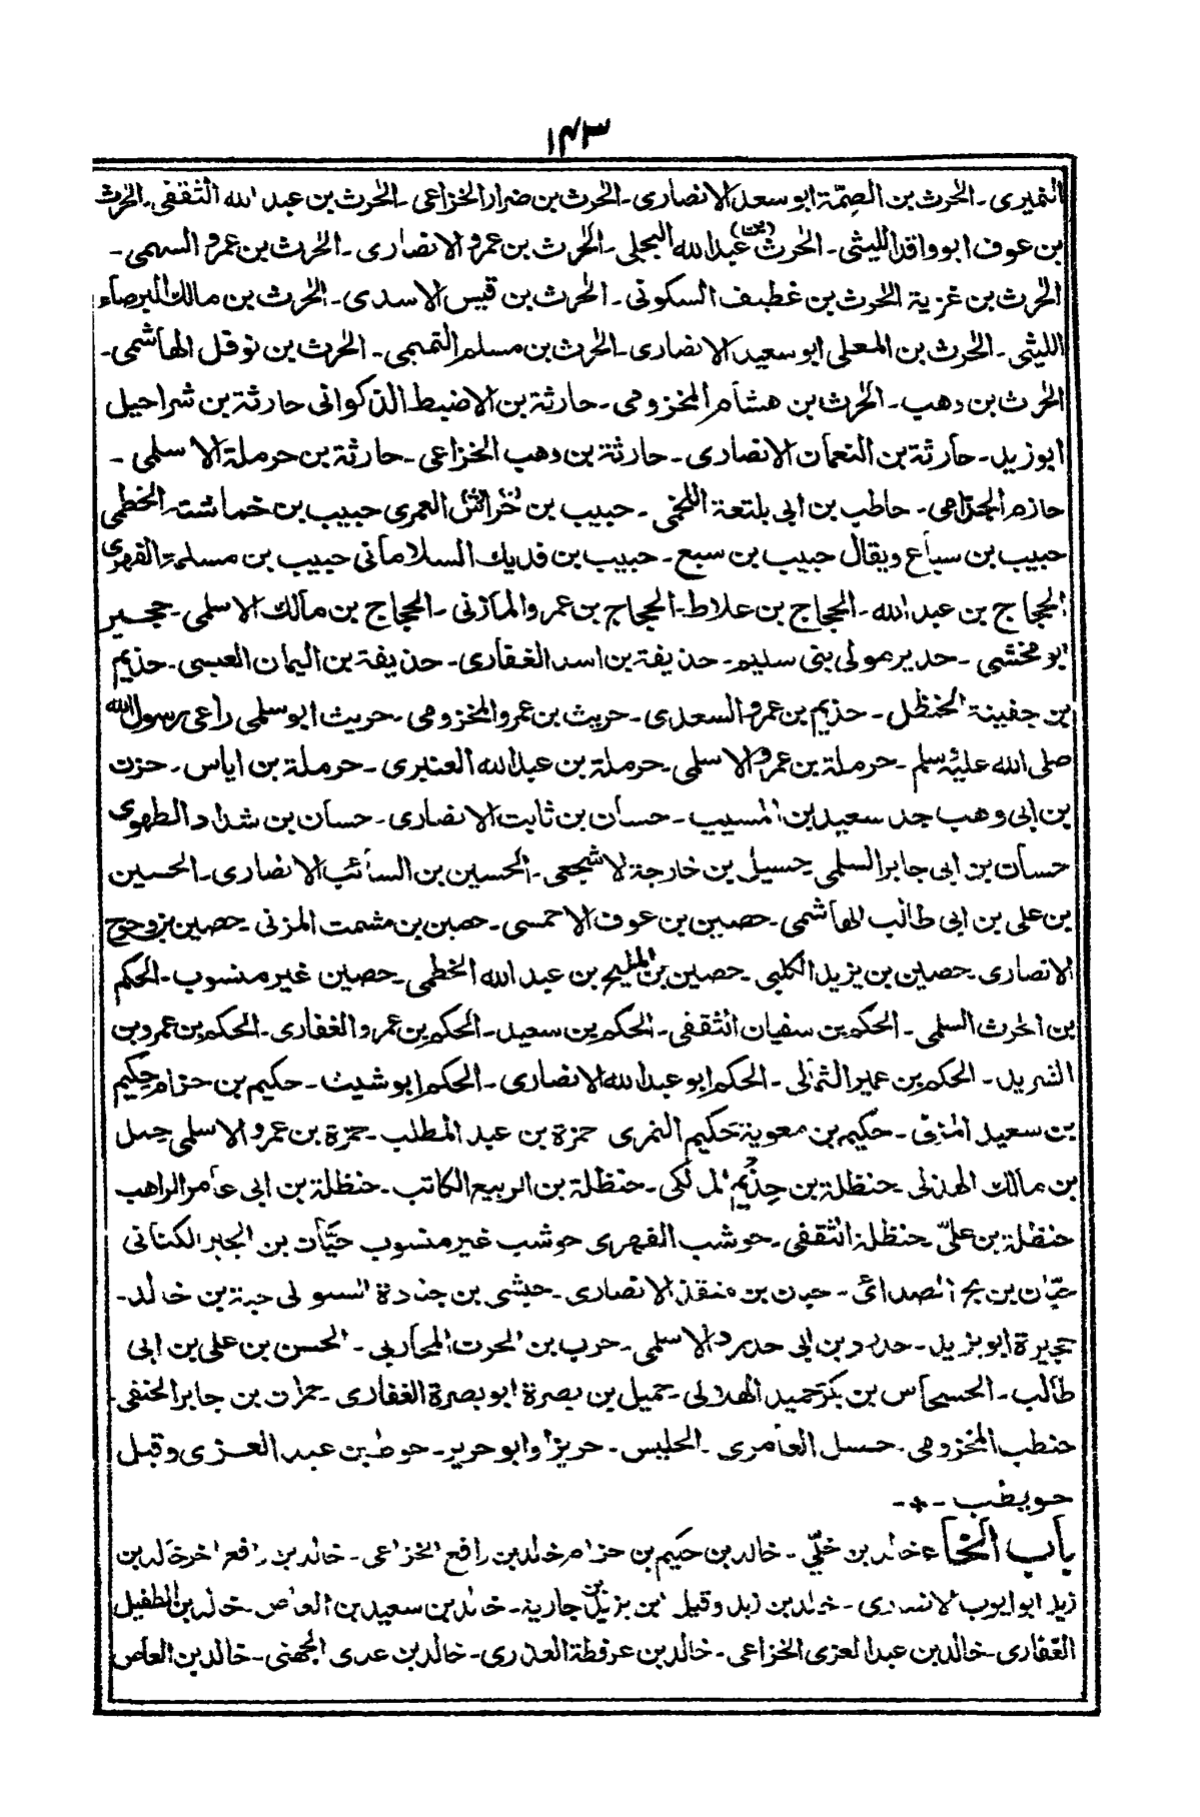 ١٤٣
النميرى - الحرث بن الصمّة ابو سعد الانصارى - الحرث بن ضرار الخزاعى - الحرث بن عبد الله الثقفى - الحرث
بن عوف ابو واقد الليثى - الحرث (بن) عبد الله البجلى - الحرث بن عمرو الانصارى - الحرث بن عمرو السهمى -
الحرث بن غزية الحرث بن غطيف السكونى - الحرث بن قيس الاسدى - الحرث بن مالك البرصاء
الليثى - الحرث بن المعلى ابو سعيد الانصارى - الحرث بن مسلم التميمى - الحرث بن نوفل الهاشمى -
الحرث بن وهب - الحرث بن هشام المخزومى - حارثة بن الاضبط الذكوانى حارثة بن شراحيل
ابو زيد - حارثة بن النعمان الانصارى - حارثة بن وهب الخزاعى - حارثة بن حرملة الاسلمى -
حازم الجذامى - حاطب بن ابى بلتعة اللخمى - حبيب بن خراش العمرى حبيب بن خماشة الخطمى
حبيب بن سباع ويقال حبيب بن سبع - حبيب بن فديك السلامانى حبيب بن مسلمة الفهرى
الحجاج بن عبد الله - الحجاج بن علاط - الحجاج بن عمرو المازنى - الحجاج بن مالك الاسلمى - حجير
ابو مخشى - حدير مولى بنى سليم - حذيفة بن اسد الغفارى - حذيفة بن اليمان العبسى - حذيم
بن حنيفة الحنظل - حذيم بن عمرو السعدى - حريث بن عمرو المخزومى - حريث ابو سلمى راعى رسول الله
صلى الله عليه وسلم - حرملة بن عمرو الاسلمى - حرملة بن عبد الله العنبرى - حرملة بن اياس - حزن
بن ابى وهب جد سعيد بن المسيب - حسان بن ثابت الانصارى - حسان بن شداد الطهوى
حسان بن ابى جابر السلمى - حسيل بن خارجة الاشجعى - الحسين بن السائب الانصارى - الحسين
بن على بن ابى طالب الهاشمى - حصين بن عوف الاحمسى - حصين بن مشمت المزنى - حصين بن وحوح
الانصارى - حصين بن يزيد الكلبى - حصين بن المليح بن عبد الله الخطمى - حصين غير منسوب - الحكم
بن الحرث السلمى - الحكم بن سفيان الثقفى - الحكم بن سعيد - الحكم بن عمرو الغفارى - الحكم بن عمرو بن
الشريد - الحكم بن عمير الثمالى - الحكم ابو عبد الله الانصارى - الحكم ابو شيث - حكيم بن حزام حكيم
بن سعيد المزنى - حكيم بن معوية حكيم النمرى حمزة بن عبد المطلب - حمزة بن عمرو الاسلمى حمل
بن مالك الهذلى - حنظلة بن حذيم المالكى - حنظلة بن الربيع الكاتب - حنظلة بن ابى عامر الراهب
حنظلة بن علىّ - حنظلة الثقفى - حوشب الفهرى حوشب غير منسوب حيّان بن ابجر الكنانى
حيّان بن بح الصدائى - حبان بن منقذ الانصارى - حبشى بن جنادة السلولى حبة بن خالد -
حجيرة ابو يزيد - حدرد بن ابى حدرد الاسلمى - حرب بن الحرث المحاربى - الحسن بن على بن ابى
طالب - الحسحاس بن بكر حميد الهلالى - حميل بن بصرة ابو بصرة الغفارى - حمران بن جابر الحنفى -
حنطب المخزومى - حسل العامرى - الحليس - حريز او ابو حريز - حوط بن عبد العزى وقيل
حويطب - * -
باب الخاء خالد بن خلّى - خالد بن حكيم بن حزام خالد بن رافع الخزاعى - خالد بن رافع اخر خالد بن
زيد ابو ايوب الانصارى - خالد بن زيد وقيل ابن يزيد بن جارية - خالد بن سعيد بن العاص - خالد بن الطفيل
الغفارى - خالد بن عبد العزى الخزاعى - خالد بن عرفطة العذرى - خالد بن عدى الجهنى - خالد بن العاص